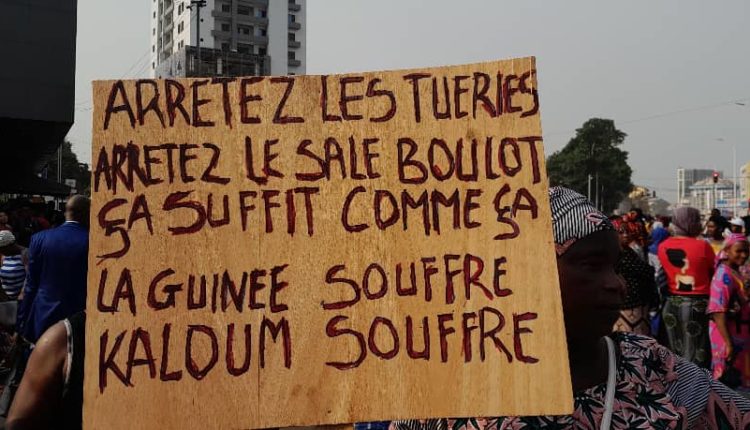 ARRETEZ LES TUERIES
ARRETEZ LE SALE BOULOT
ÇA SUFFIT COMME ÇA
LA GUINEE SOUFFRE
KALOUM SOUFFRE